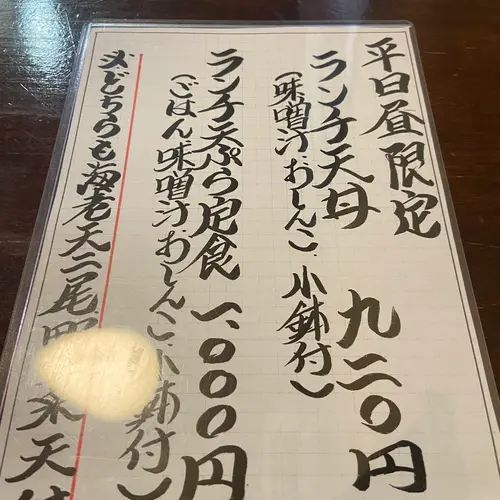 平日昼限定
ランチ天丼 九二〇円
(味噌汁.おしんこ.小鉢付)
ランチ天ぷら定食 一、〇〇〇円
(ごはん味噌汁おしんこ.小鉢付)
※どちらも海老天二尾野菜天付